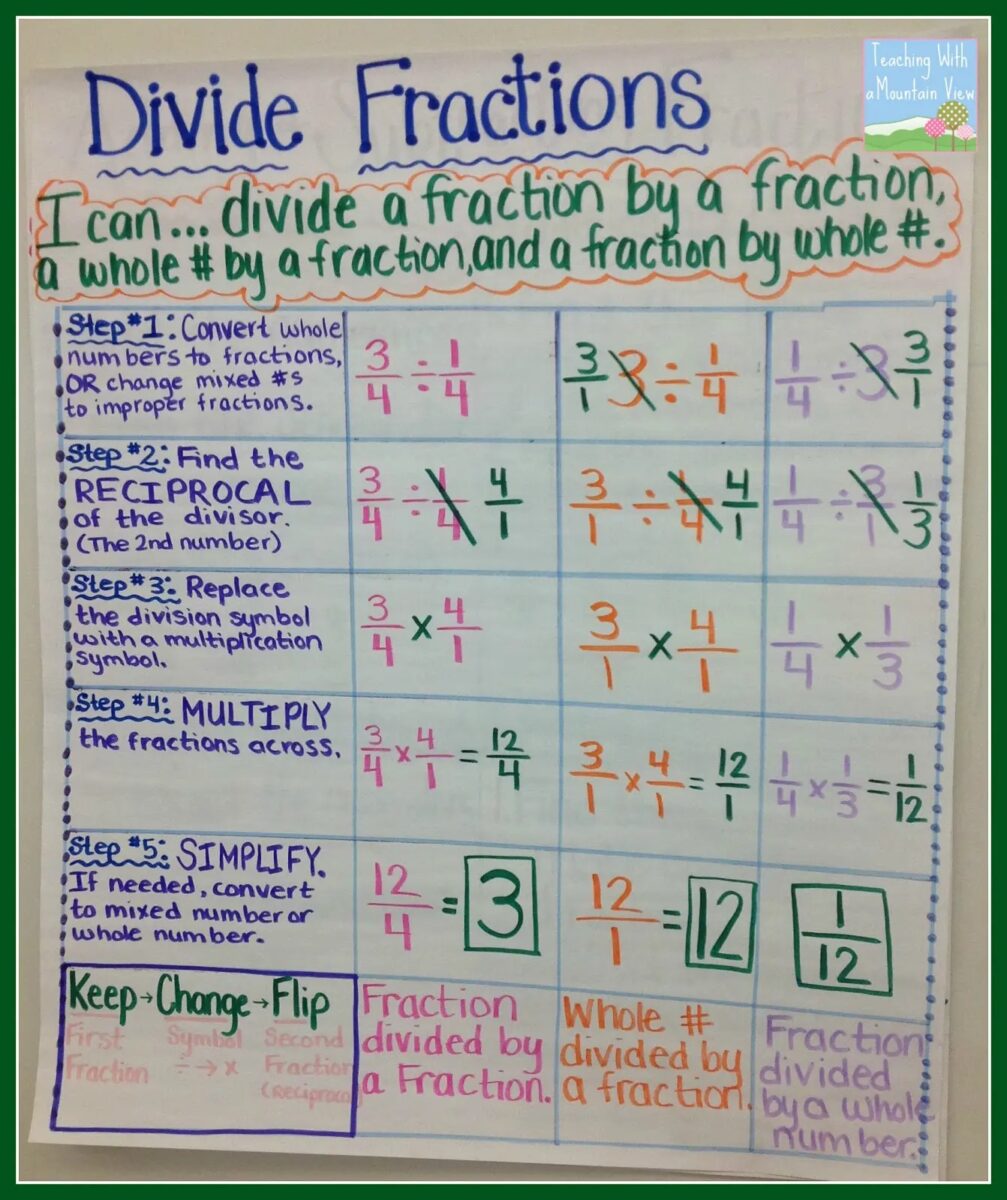 Teaching With
a Mountain View
Divide Fractions
I can... divide a fraction by a fraction,
a whole # by a fraction, and a fraction by whole #.
Step #1: Convert whole
numbers to fractions,
OR change mixed #s
to improper fractions.
3/4 ÷ 1/4
3/1 3 ÷ 1/4
1/4 ÷ 3 3/1
Step #2: Find the
RECIPROCAL
of the divisor.
(The 2nd number)
3/4 ÷ 1/4 4/1
3/1 ÷ 1/4 4/1
1/4 ÷ 3/1 1/3
Step #3: Replace
the division symbol
with a multiplication
symbol.
3/4 x 4/1
3/1 x 4/1
1/4 x 1/3
Step #4: MULTIPLY
the fractions across.
3/4 x 4/1 = 12/4
3/1 x 4/1 = 12/1
1/4 x 1/3 = 1/12
Step #5: SIMPLIFY.
If needed, convert
to mixed number or
whole number.
12/4 = 3
12/1 = 12
1/12
Keep → Change → Flip
First Symbol Second
Fraction ÷ → x Fraction
(Reciprocal)
Fraction
divided by
a Fraction.
Whole #
divided by
a fraction.
Fraction
divided
by a whole
number.